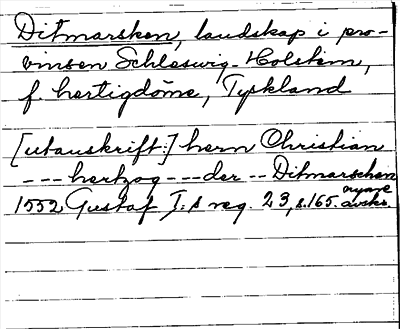 Ditmarsken, landskap i pro-
vinsen Schleswig-Holstein,
f. hertigdöme, Tyskland
[utanskrift:] hern Christian
--- hertzog --- der -- Ditmarschen
1552 Gustaf I:s reg. 23, s. 165. nyare avskr.